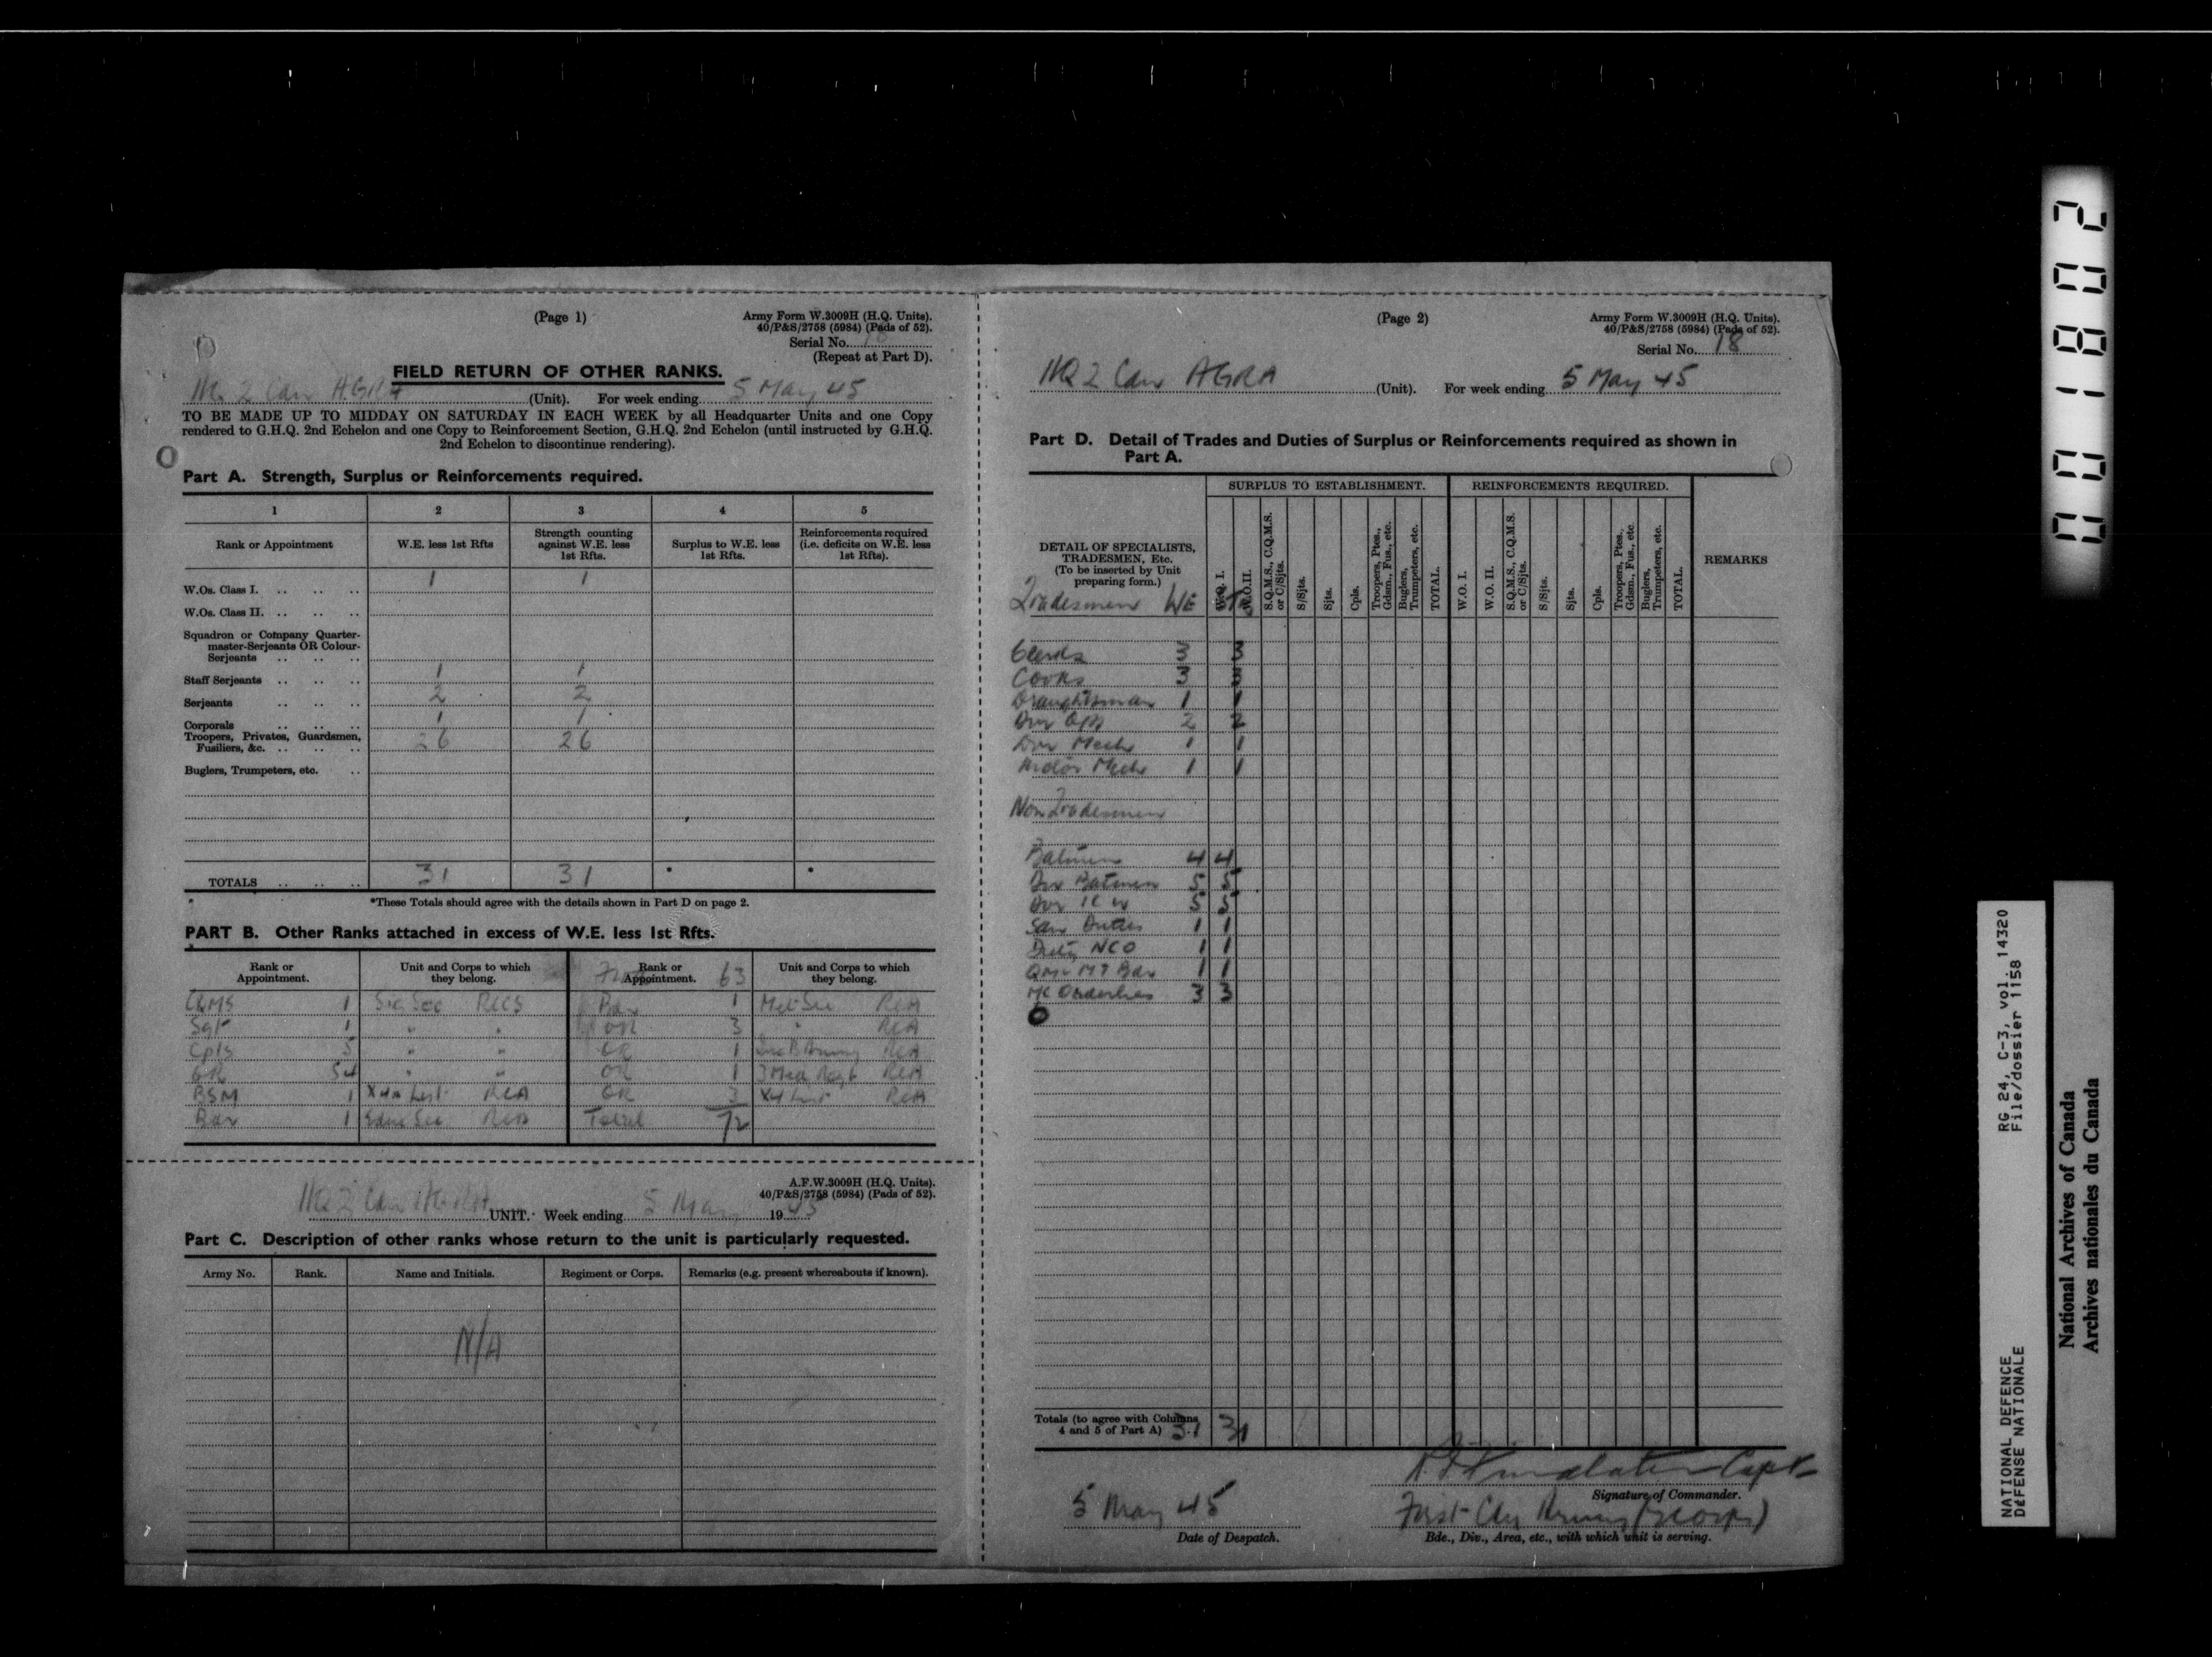 (Page 1)
Army Form W.3009H (H.Q. Units).
40/P&S/2758 (5984) (Pads of 52).
Serial No. 18
(Repeat at Part D).
FIELD RETURN OF OTHER RANKS.
HQ 2 Cdn AGRA (Unit). For week ending 5 May 45
TO BE MADE UP TO MIDDAY ON SATURDAY IN EACH WEEK by all Headquarter Units and one Copy
rendered to G.H.Q. 2nd Echelon and one Copy to Reinforcement Section, G.H.Q. 2nd Echelon (until instructed by G.H.Q.
2nd Echelon to discontinue rendering).
Part A. Strength, Surplus or Reinforcements required.
1 2 3 4 5
Rank or Appointment W.E. less 1st Rfts Strength counting against W.E. less 1st Rfts. Surplus to W.E. less 1st Rfts. Reinforcements required (i.e. deficits on W.E. less 1st Rfts).
W.Os. Class I. .. .. .. 1 1
W.Os. Class II. .. .. ..
Squadron or Company Quarter-
master-Serjeants OR Colour-
Serjeants .. .. ..
Staff Serjeants .. .. .. 1 1
Serjeants .. .. .. 2 2
Corporals .. .. .. 1 1
Troopers, Privates, Guardsmen,
Fusiliers, &c. .. .. .. 26 26
Buglers, Trumpeters, etc. ..
TOTALS .. .. .. 31 31 * *
*These Totals should agree with the details shown in Part D on page 2.
PART B. Other Ranks attached in excess of W.E. less 1st Rfts.
Rank or Appointment. Unit and Corps to which they belong. Rank or Appointment. 63 Unit and Corps to which they belong.
CQMS 1 Sig Sec RCCS Bdr 1 Met Sec RCA
Sgt 1 " " OR 3 " RCA
Cpls 5 " " OR 1 RCA
OR 54 " " OR 1 3 Med Regt RCA
BSM 1 X4 List RCA OR 3 X4 List RCA
Bdr 1 Sec RCA Total 72
HQ 2 Cdn AGRA UNIT. Week ending 5 May 1945
A.F.W.3009H (H.Q. Units).
40/P&S/2758 (5984) (Pads of 52).
Part C. Description of other ranks whose return to the unit is particularly requested.
Army No. Rank. Name and Initials. Regiment or Corps. Remarks (e.g. present whereabouts if known).
N/A
(Page 2)
Army Form W.3009H (H.Q. Units).
40/P&S/2758 (5984) (Pads of 52).
Serial No. 18
HQ 2 Cdn AGRA (Unit). For week ending 5 May 45
Part D. Detail of Trades and Duties of Surplus or Reinforcements required as shown in
Part A.
SURPLUS TO ESTABLISHMENT. REINFORCEMENTS REQUIRED.
DETAIL OF SPECIALISTS,
TRADESMEN, Etc.
(To be inserted by Unit
preparing form.)
W.O. I. W.O.II. S.Q.M.S., C.Q.M.S. or C/Sjts. S/Sjts. Sjts. Cpls. Troopers, Ptes., Gdsm., Fus., etc. Buglers, Trumpeters, etc. TOTAL.
W.O. I. W.O. II. S.Q.M.S., C.Q.M.S. or C/Sjts. S/Sjts. Sjts. Cpls. Troopers, Ptes., Gdsm., Fus., etc Buglers, Trumpeters, etc. TOTAL.
REMARKS
Tradesmen WE
Clerks 3 3
Cooks 3 3
Draughtsman 1 1
Dvr Ops 2 2
Dvr Mech 1 1
Motor Mech 1 1
Non Tradesmen
Batmen 4 4
Dvr Batmen 5 5
Dvr IC 5 5
San Duties 1 1
Duty NCO 1 1
MT Bdr 1 1
MC Orderlies 3 3
Totals (to agree with Columns
4 and 5 of Part A) 31 31
Capt
Signature of Commander.
5 May 45
Date of Despatch.
First Cdn Army (2 Corps)
Bde., Div., Area, etc., with which unit is serving.
001802
RG 24, C-3, vol. 14320
File/dossier 1158
NATIONAL DEFENCE
DÉFENSE NATIONALE
National Archives of Canada
Archives nationales du Canada